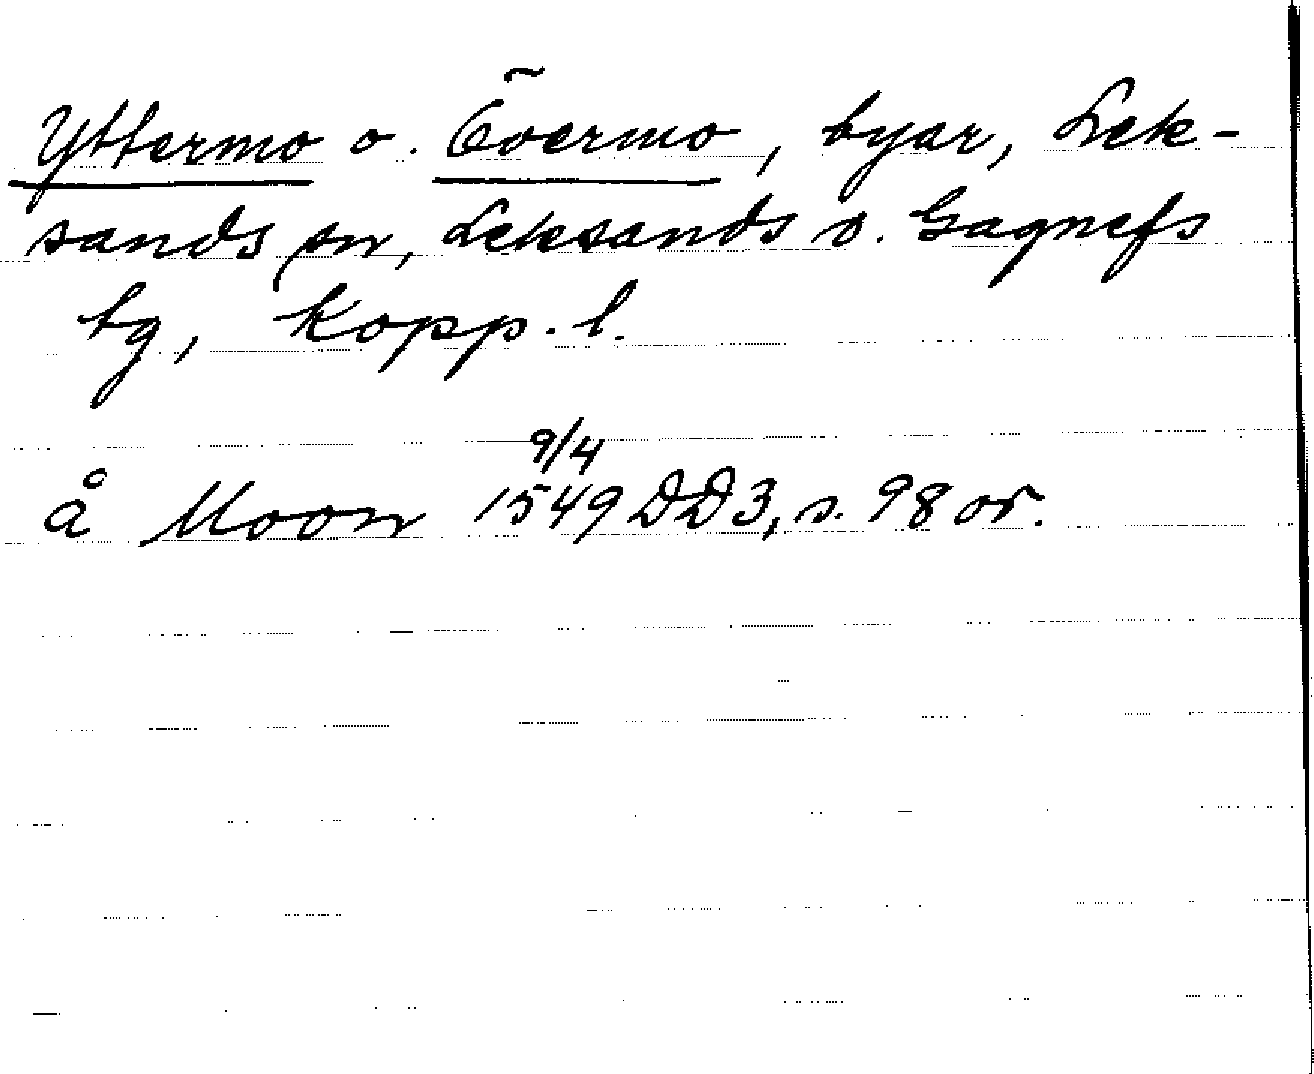 Yttermo o. Övermo, byar, Lek-
sands sn, Leksands o. Gagnefs
tg, Kopp. l.
9/4
å Moon 1549 DD3, s. 98 or.